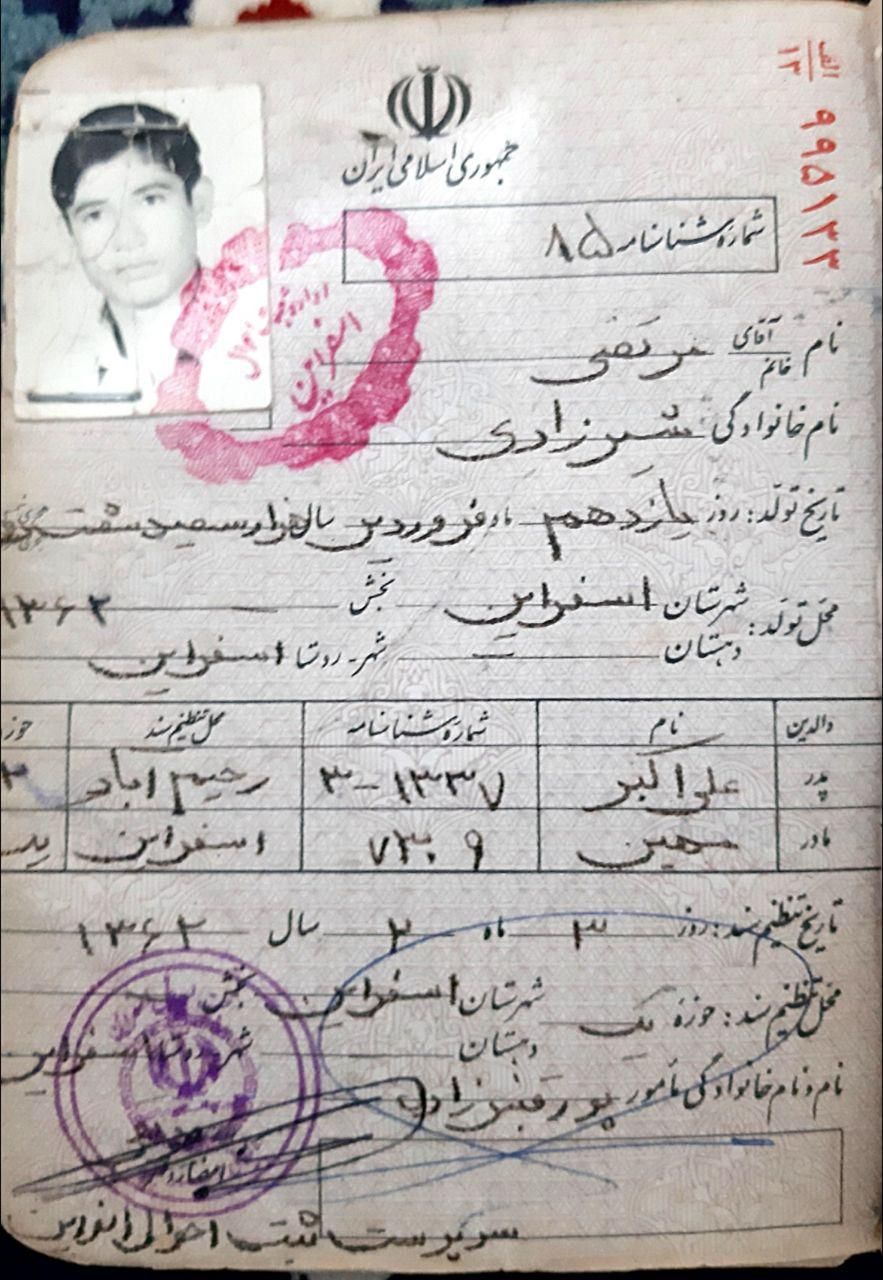 الف
۱۳
۹۹۵۱۳۳
جمهوری اسلامی ایران
شماره شناسنامه ۸۵
نام آقای خانم مرتضی
اداره ثبت احوال
اسفراین
نام خانوادگی شیرزادی
تاریخ تولد: روز یازدهم ماه فروردین سال هزار سیصد شصت
محل تولد: شهرستان اسفراین بخش ۱۳۶۲
دهستان شهر - روستا اسفراین
والدین نام شماره شناسنامه محل تنظیم سند حوزه
پدر علی اکبر ۱۳۳۷-۳ رحیم آباد
مادر مهین ۷۳۰۹ اسفراین
تاریخ تنظیم سند: روز ۳ ماه ۲ سال ۱۳۶۲
محل تنظیم سند: حوزه یک شهرستان اسفراین بخش
دهستان شهر - روستا اسفراین
نام و نام خانوادگی مأمور
سرپرست ثبت احوال اسفراین